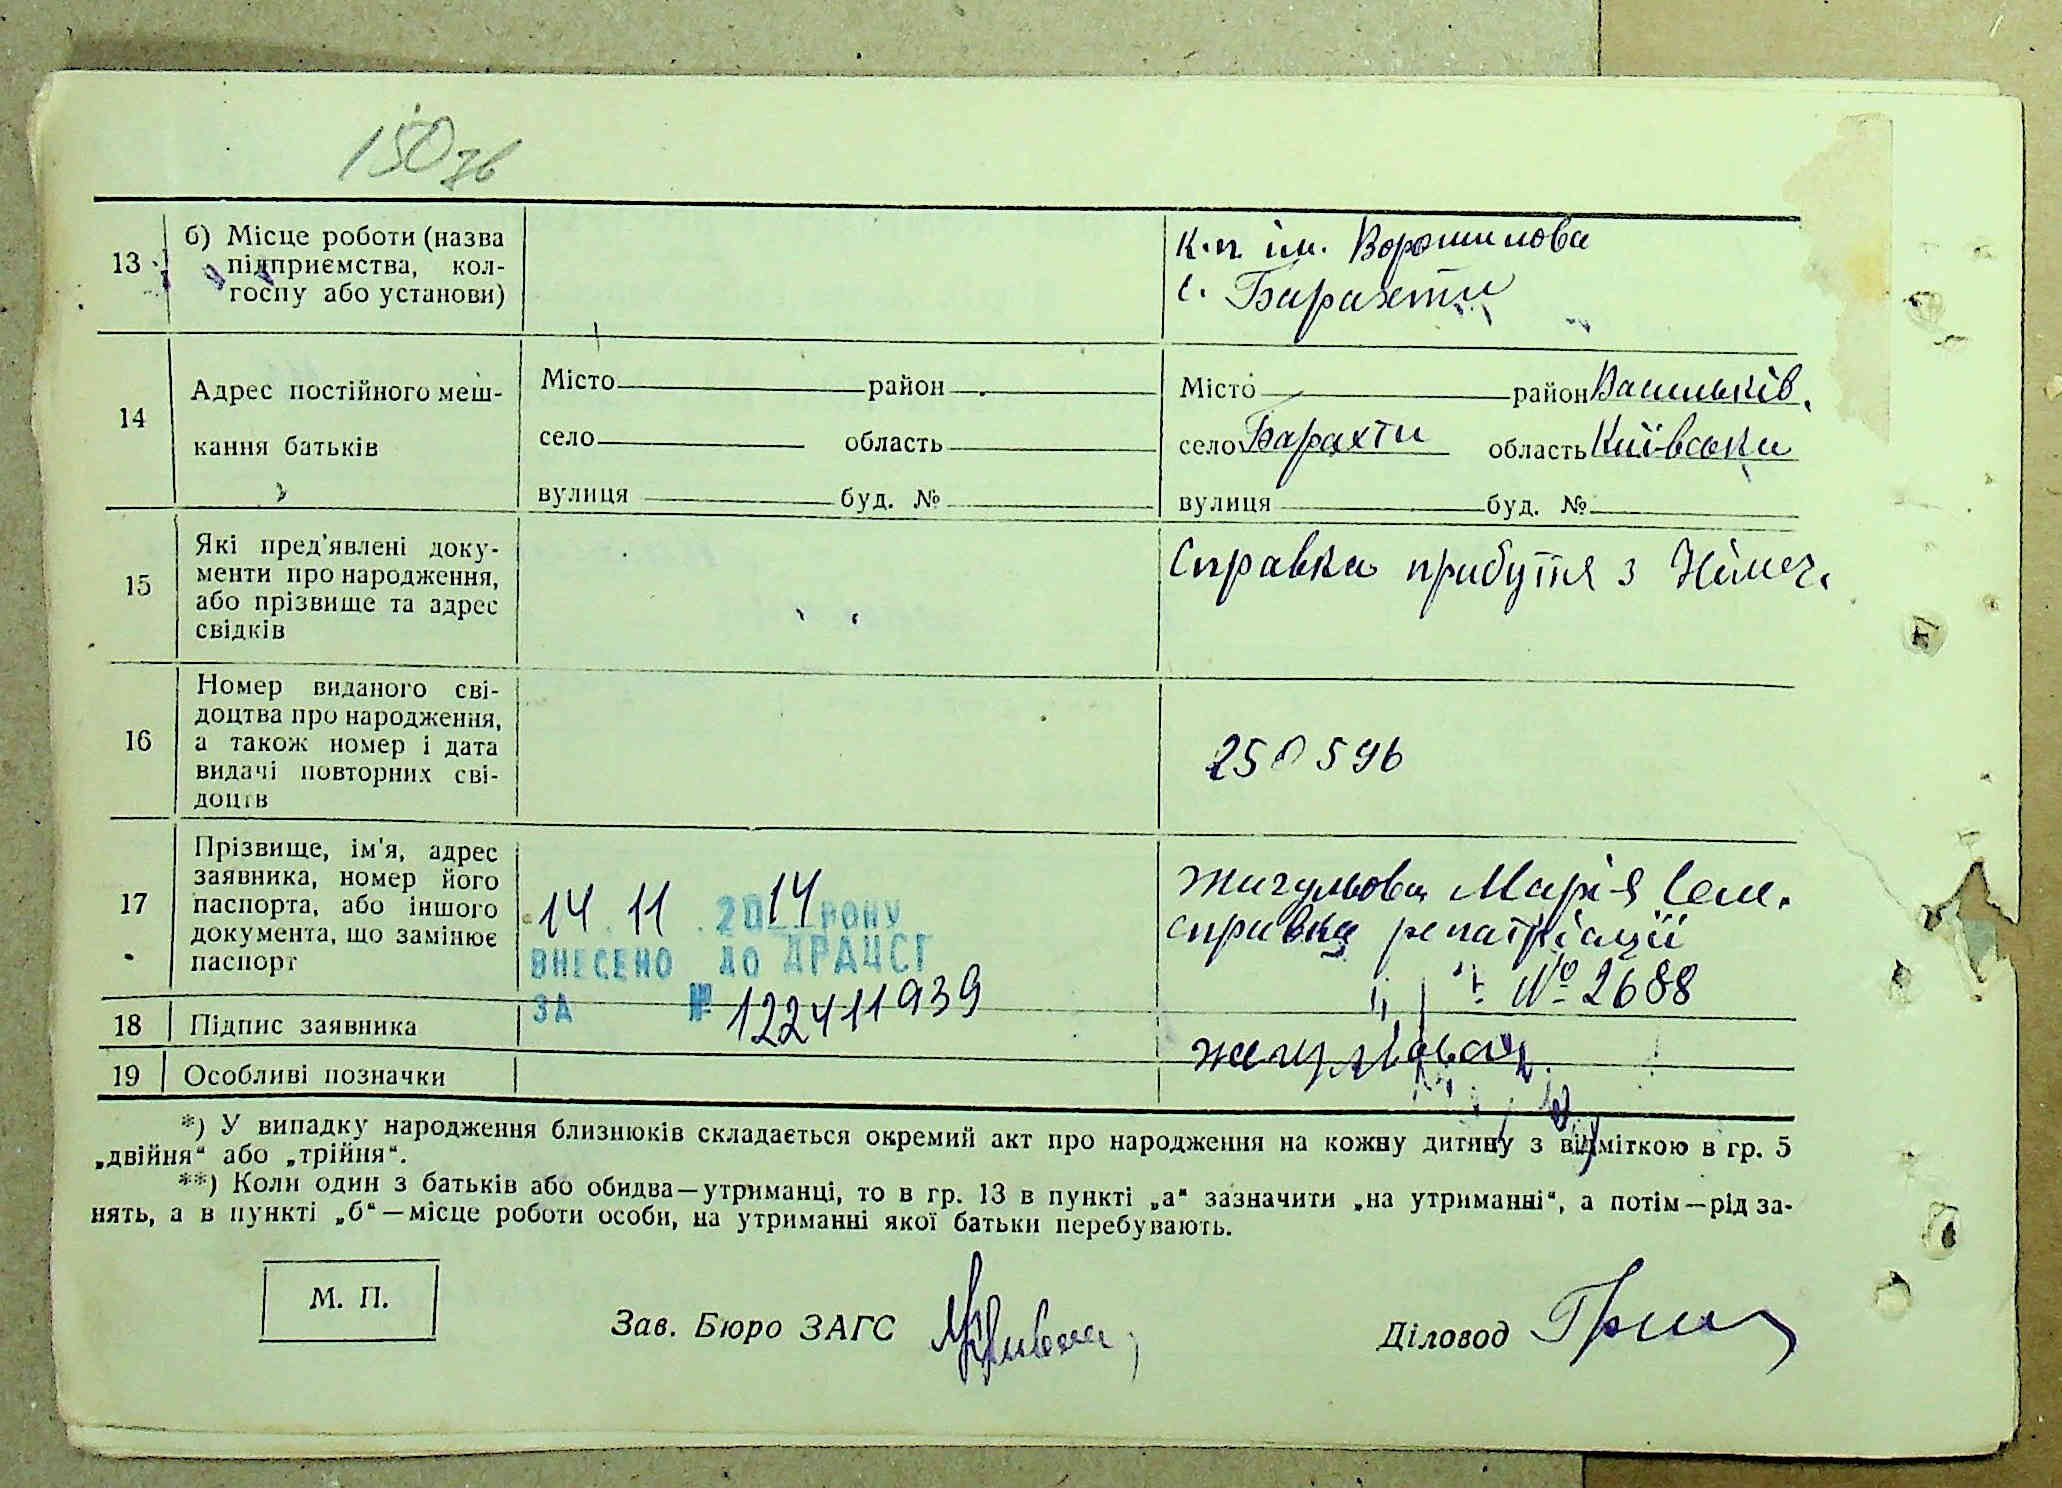 150 зв
13 б) Місце роботи (назва
підприємства, кол-
госпу або установи)
к.г. ім. Ворошилова
с. Барахти
14 Адрес постійного меш-
кання батьків
Місто район
село область
вулиця буд. №
Місто район Васильків.
село Барахти область Київська
вулиця буд. №
15 Які пред'явлені доку-
менти про народження,
або прізвище та адрес
свідків
Справка прибуття з Німеч.
16 Номер виданого сві-
доцтва про народження,
а також номер і дата
видачі повторних сві-
доцтв
250596
17 Прізвище, ім'я, адрес
заявника, номер його
паспорта, або іншого
документа, що замінює
паспорт
14.11.2014 РОКУ
ВНЕСЕНО ДО ДРАЦСГ
ЗА № 122411939
Жигульова Марія Сем.
справка репатріації
№ 2688
18 Підпис заявника
Жигульова
19 Особливі позначки
*) У випадку народження близнюків складається окремий акт про народження на кожну дитину з відміткою в гр. 5
„двійня“ або „трійня“.
**) Коли один з батьків або обидва—утриманці, то в гр. 13 в пункті „а“ зазначити „на утриманні“, а потім—рід за-
нять, а в пункті „б“—місце роботи особи, на утриманні якої батьки перебувають.
М. П.
Зав. Бюро ЗАГС
Діловод